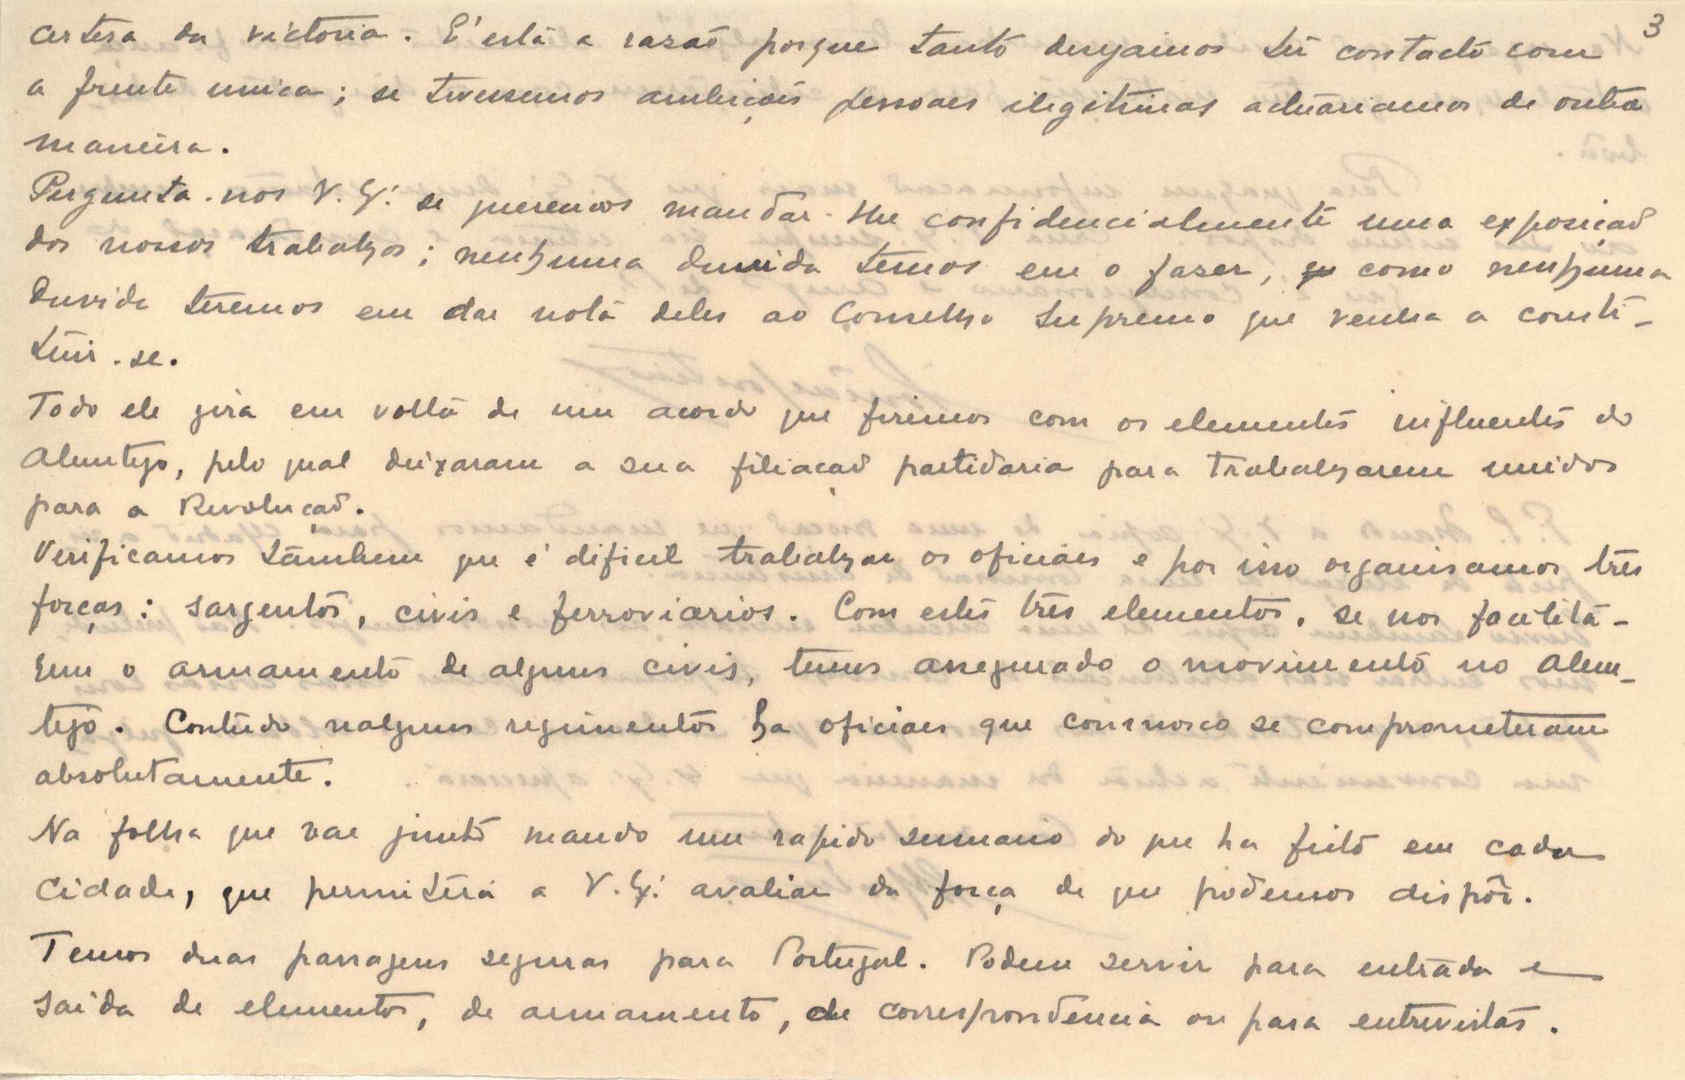 3
certesa da victoria. E' esta a rasaõ porque tanto desejamos ter contacto com
a frente unica; se tivessemos ambições pessoaes ilegitimas actuariamos de outra
maneira.
Pergunta-nos V. Ex.ª se queremos mandar-lhe confidencialmente uma exposiçaõ
dos nossos trabalhos; nenhuma duvida temos em o fazer, como nenhuma
duvida teremos em dar nota deles ao Conselho Supremo que venha a consti-
tuir-se.
Todo ele gira em volta de um acordo que firimos com os elementos influentes do
Alemtejo, pelo qual deixaram a sua filiaçaõ partidaria para trabalharem unidos
para a Revoluçaõ.
Verificamos tambem que é dificil trabalhar os oficiaes e por isso organisamos três
forças: sargentos, civis e ferroviarios. Com estes três elementos, se nos facilita-
rem o armamento de alguns civis, temos assegurado o movimento no Alem-
tejo. Contudo nalguns regimentos ha oficiaes que comnosco se comprometeram
absolutamente.
Na folha que vae junto mando um rapido sumario do que ha feito em cada
cidade, que permitirá a V. Ex.ª avaliar da força de que podemos dispôr.
Temos duas passagens seguras para Portugal. Podem servir para entrada e
saida de elementos, de armamento, de correspondencia ou para entrevistas.